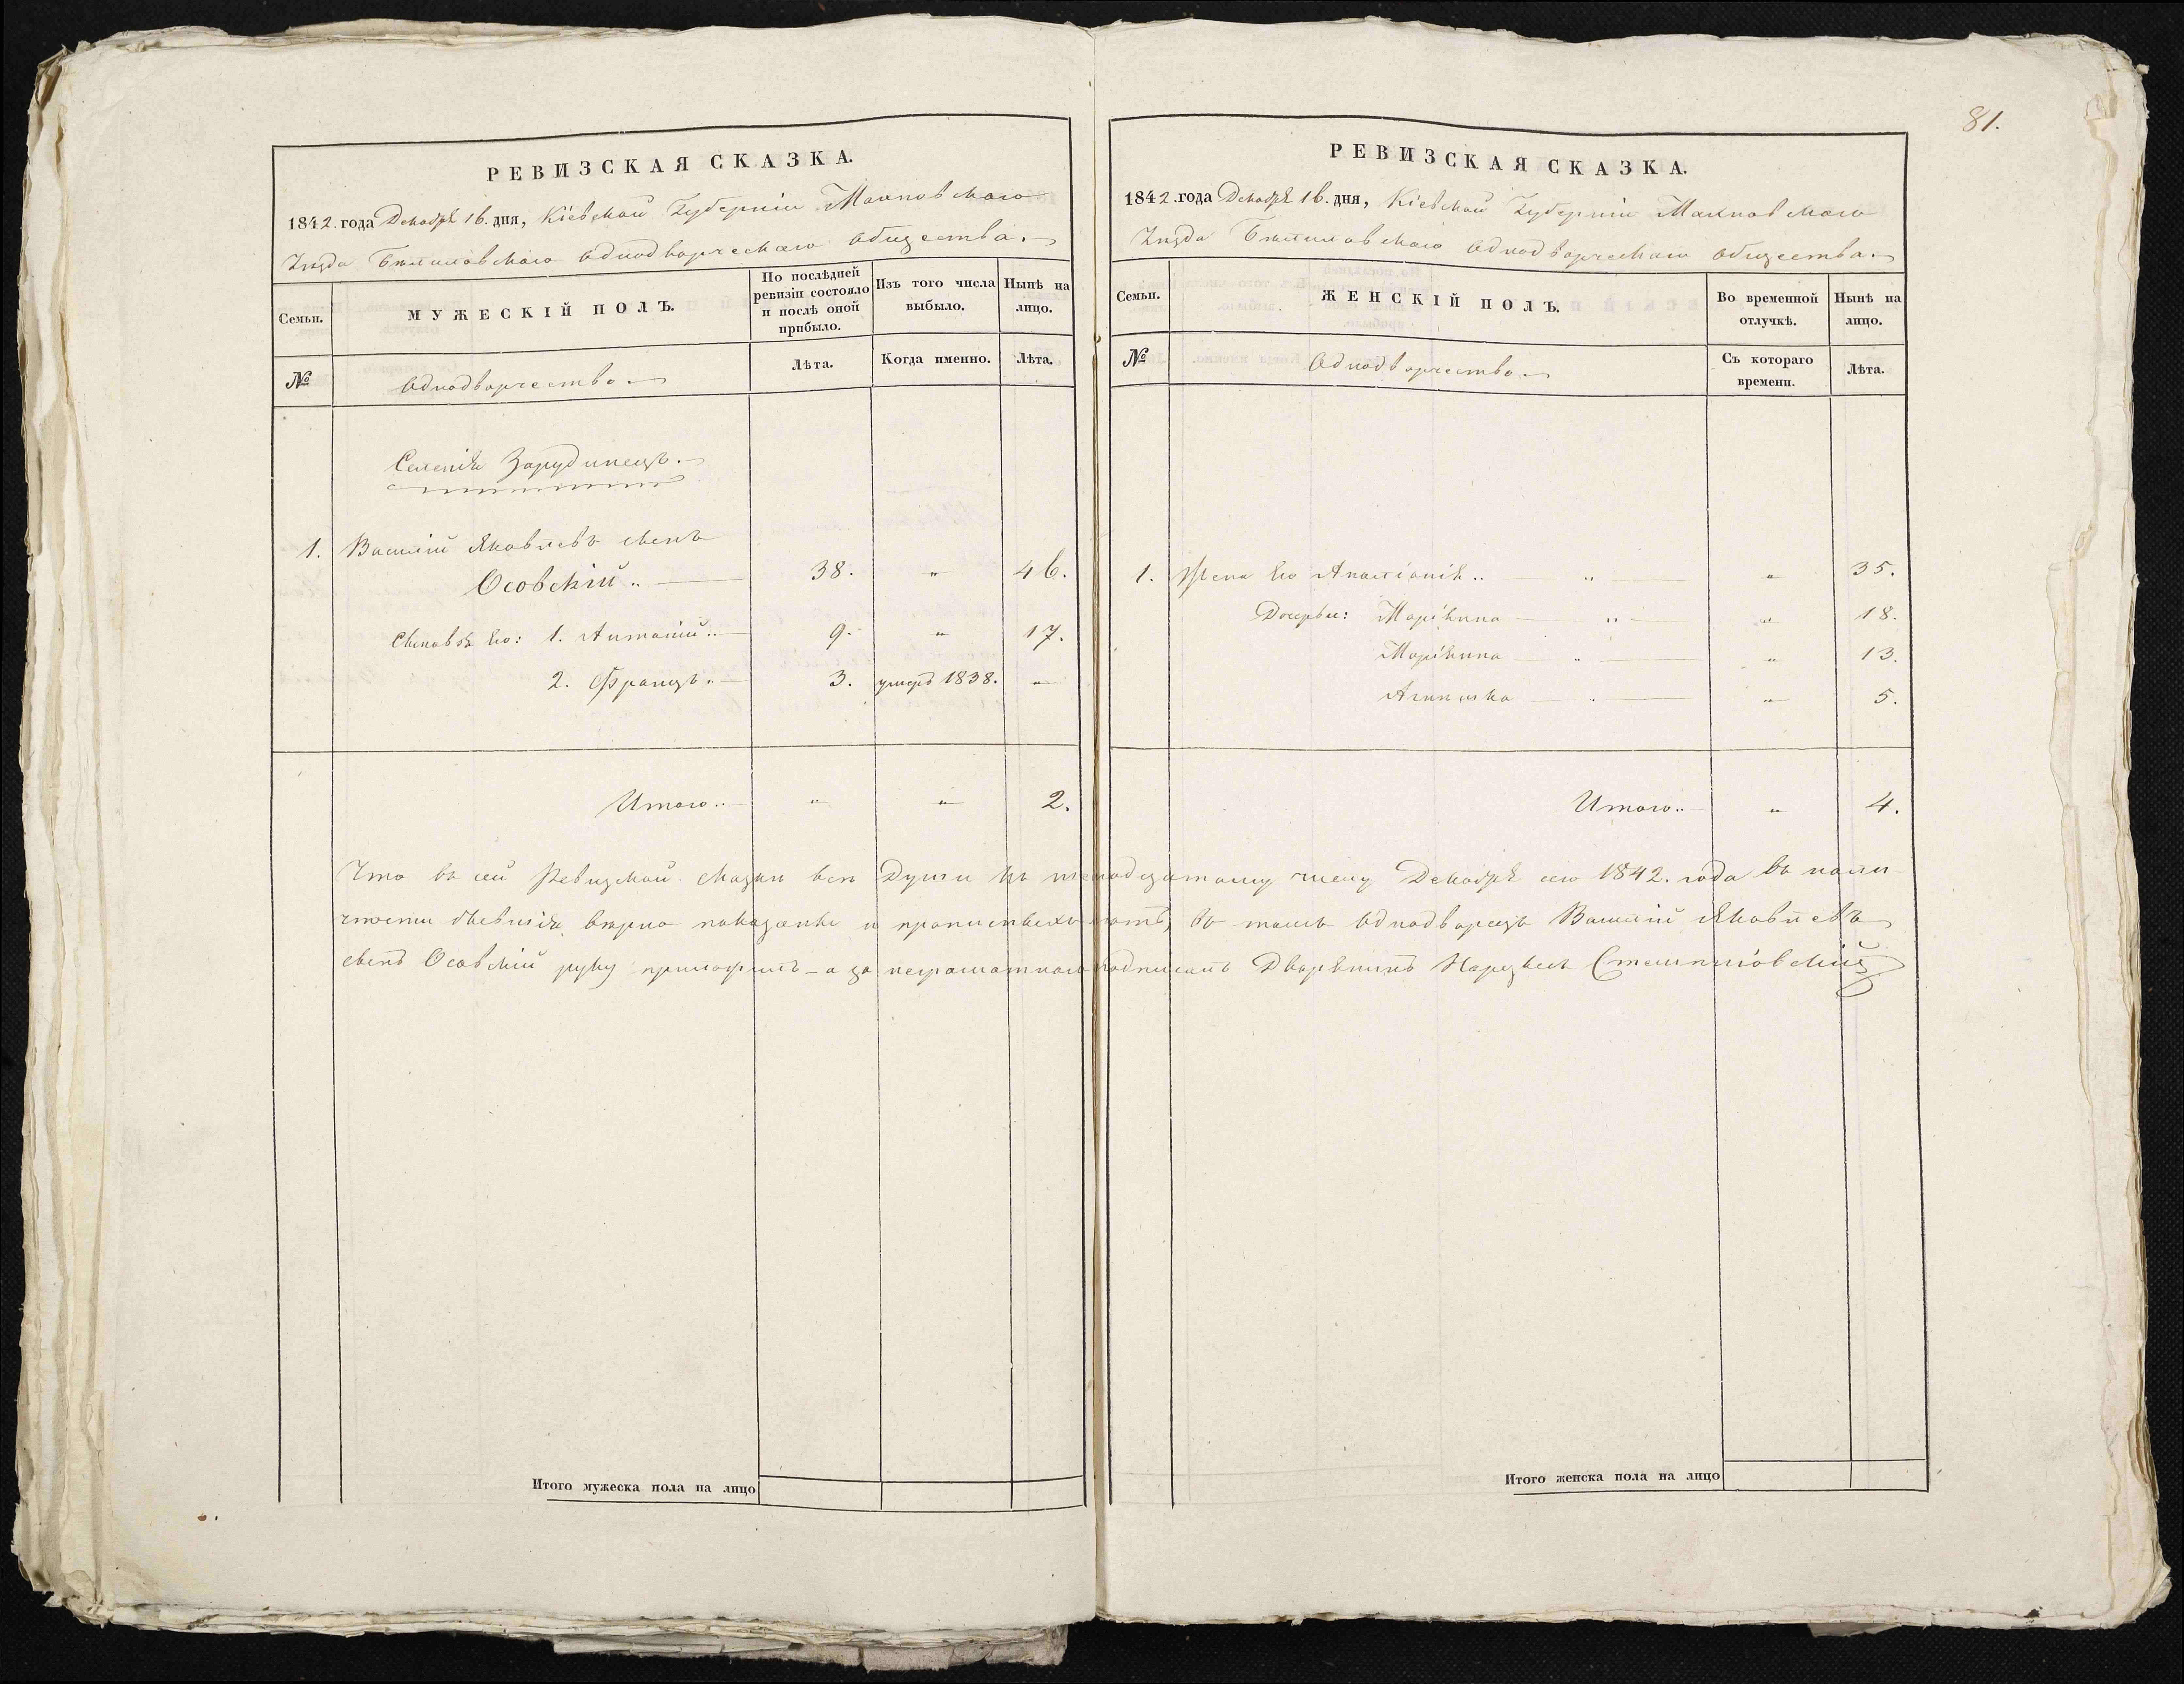 РЕВИЗСКАЯ СКАЗКА.
1842. года Декабря 16. дня, Кіевской Губерніи Махновскаго
Уѣзда Бѣлиловскаго Однодворческаго Общества.
Семьи.
МУЖЕСКІЙ ПОЛЪ.
По послѣдней ревизіи состояло и послѣ оной прибыло.
Изъ того числа выбыло.
Нынѣ на лицо.
№
Однодворчество
Лѣта.
Когда именно.
Лѣта.
Селенія Зарудинецъ.
1. Василій Яковлевъ сынъ
Осовскій .. 38. " 46.
Сыновья Его: 1. Антоній .. 9. " 17.
2. Францъ .. 3. умеръ 1838. "
Итого .. " " 2.
Итого мужеска пола на лицо
81.
РЕВИЗСКАЯ СКАЗКА.
1842. года Декабря 16. дня, Кіевской Губерніи Махновскаго
Уѣзда Бѣлиловскаго Однодворческаго Общества.
Семьи.
ЖЕНСКІЙ ПОЛЪ.
Во временной отлучкѣ.
Нынѣ на лицо.
№
Однодворчество
Съ котораго времени.
Лѣта.
1. Жена Его .. " " 35.
Дочери: Маріянна " " 18.
Маріянна " " 13.
" " 5.
Итого .. " 4.
Что въ сей Ревизской сказки всѣ Души къ шеснадцатому числу Декабря сего 1842. года въ нали-
чности бывшія вѣрно показаны и прописныхъ нѣтъ, въ томъ Однодворецъ Василій Яковлевъ
сынъ Осовскій руку приложилъ – а за неграмотнаго подписалъ Дворянинъ
Итого женска пола на лицо